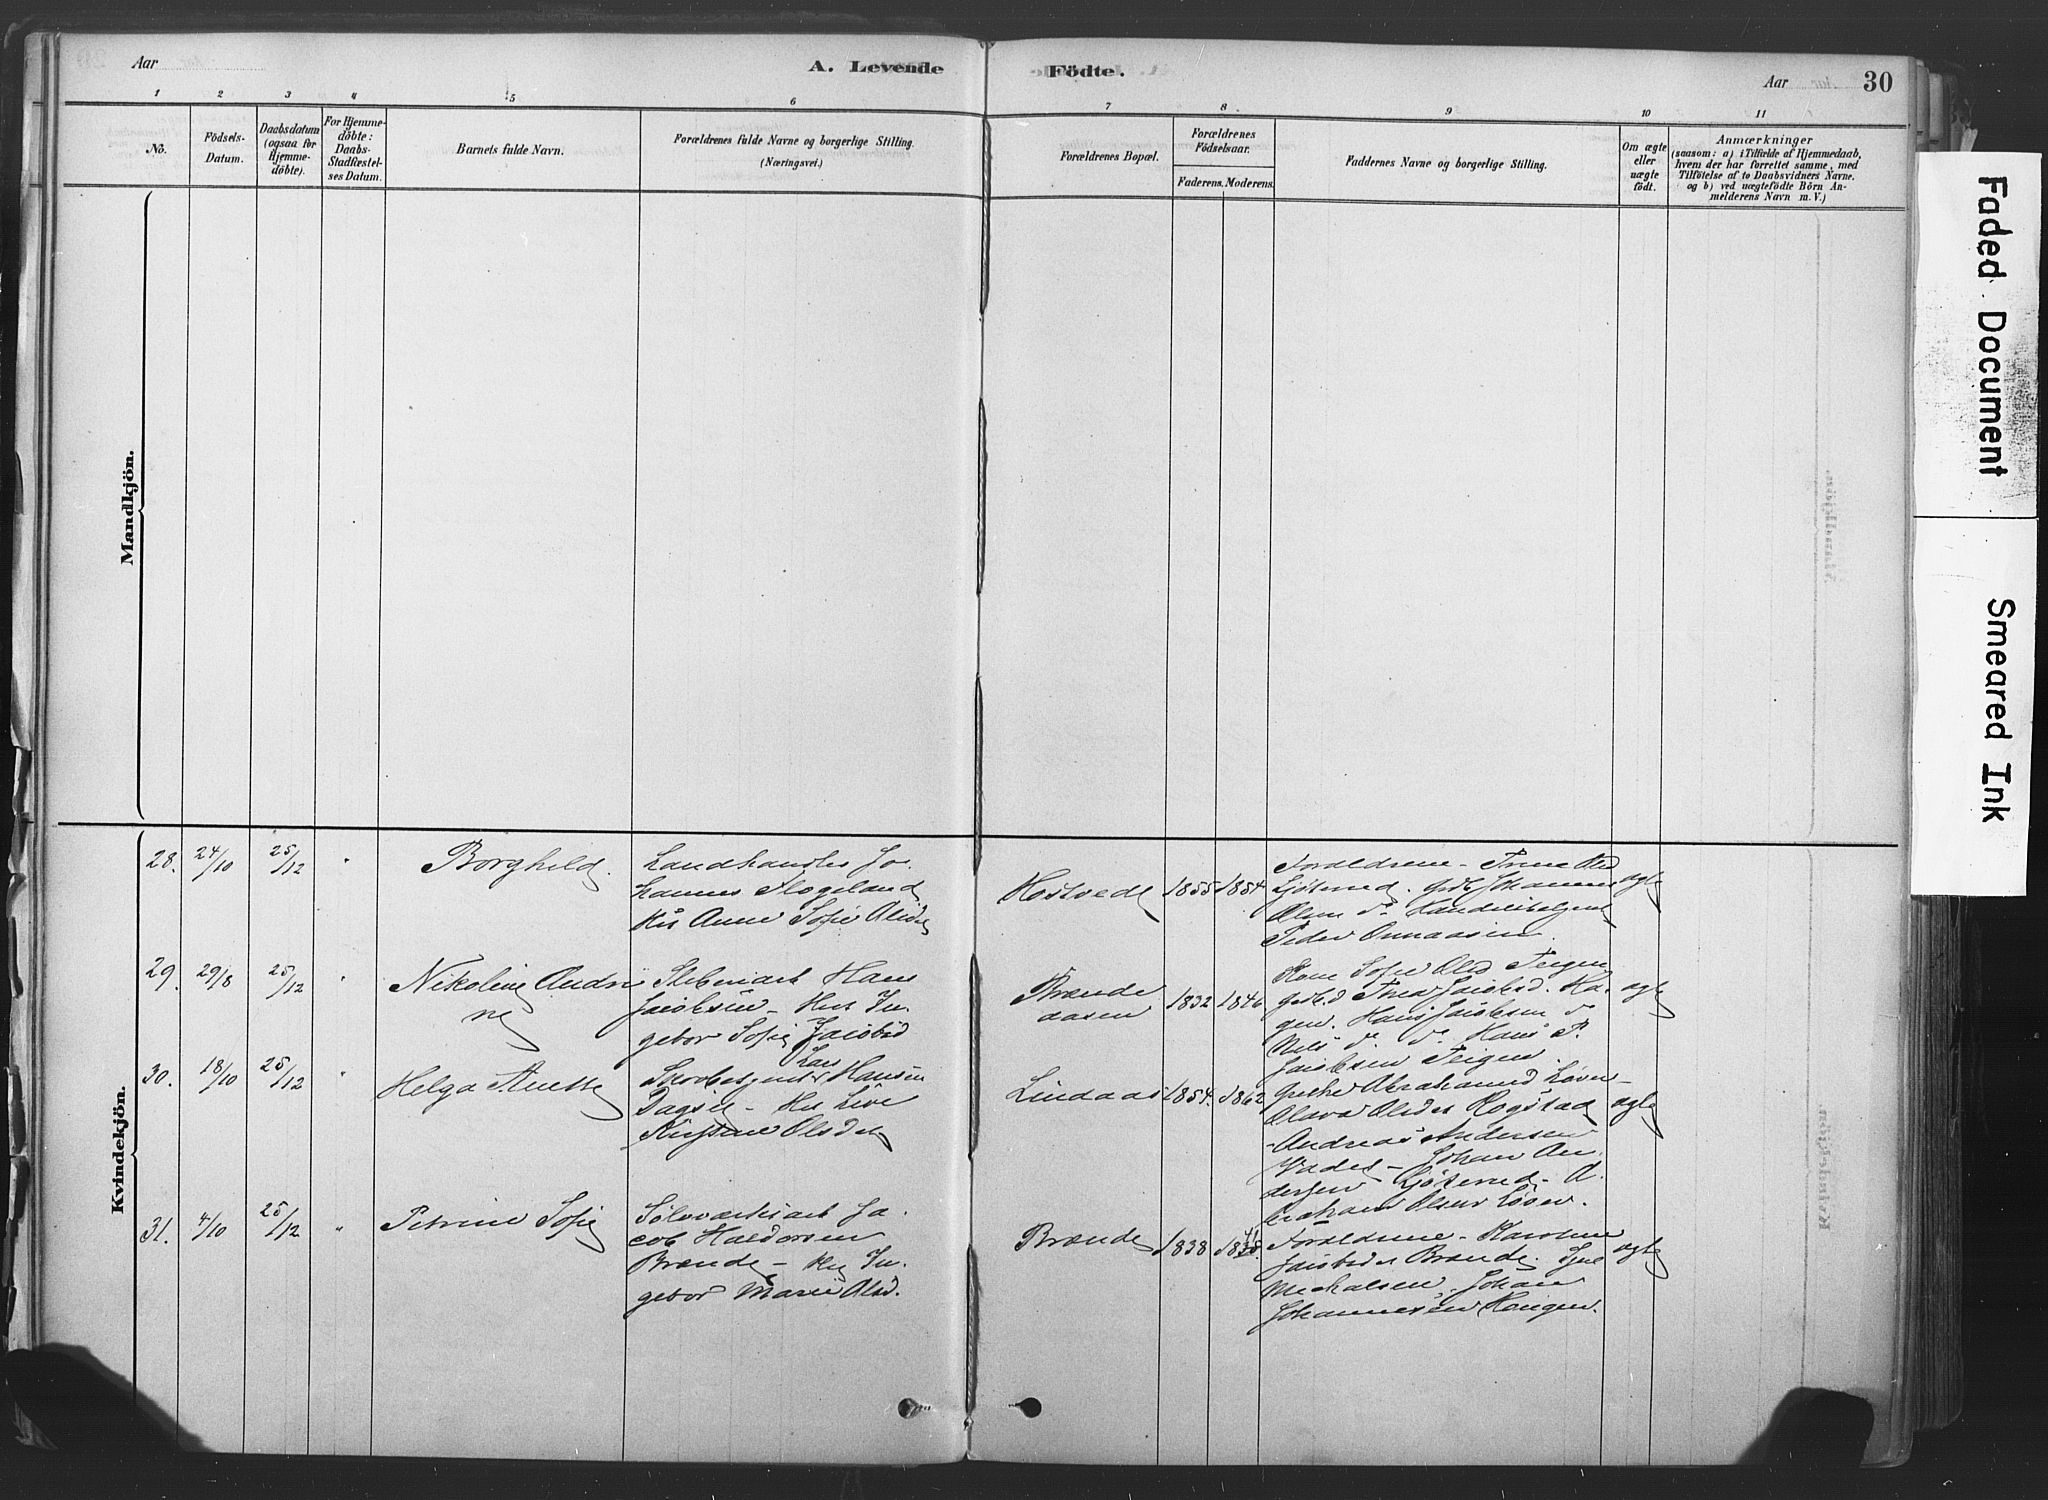 Aar
A. Levende
Födte.
Aar
30
1
2
3
4
5
6
7
8
9
10
11
No.
Födsels-
Datum.
Daabsdatum
(ogsaa for
Hjemme-
döbte).
For Hjemme-
döbte:
Daabs-
Stadfæstel-
ses Datum.
Barnets fulde Navn.
Forældrenes fulde Navne og borgerlige Stilling.
(Næringsvei.)
Forældrenes Bopæl.
Forældrenes
Födselsaar.
Faderens.
Moderens.
Faddernes Navne og borgerlige Stilling.
Om ægte
eller
uægte
födt.
Anmærkninger
(saasom: a) i Tilfælde af Hjemmedaab,
hvem der har forrettet samme, med
Tilföielse af to Daabsvidners Navne.
og b) ved uægtefödte Börn An-
melderens Navn m. V.)
Mandkjön.
Kvindekjön.
28.
24/10
25/12
"
Borghild
Landhandler Jo-
hannes Flogeland
Hus Anne Sofie Olsdr
Hostvedt
1855
1854
Forældrene - Trine Olsd
Ljøterud. Grdb. Johannes
Olsen do Handelsbetjent
Peder Ormaasen
ægte
29.
29/8
25/12
"
Nikoline Andri
ne
Hans
Jacobsen - Hus In-
gebor Sofie Jacobsd
Brænde
aasen
1832
1846
Kone Sofie Olsd Teigen
Jacobsd. Ha-
gen. Hans Jacobsen do
Nils do do Hans P.
Jacobsen Teigen
ægte
30.
18/10
25/12
"
Helga Anette
Lars
Hansen
- Hus Live
Kirstine Olsdr
Lindaas
1854.
1862
Grethe Abrahamsd Løver-
Olava Olsdr Rogstad
- Andreas Andersen
- Johan An
dersen Ljøterud - A.
braham Olsen Løver.
ægte
31.
4/10
25/12
"
Petrine Sofie
Sølvværksarb Ja-
cob Haldorsen
Brænde - Hus In-
gebor Marie Olsd.
Brænde
1838
Forældrene - Karoline
Jacobsdr Brænde.
Michalsen, Johan
Johannesen Haugen.
ægte
Faded Document
Smeared Ink